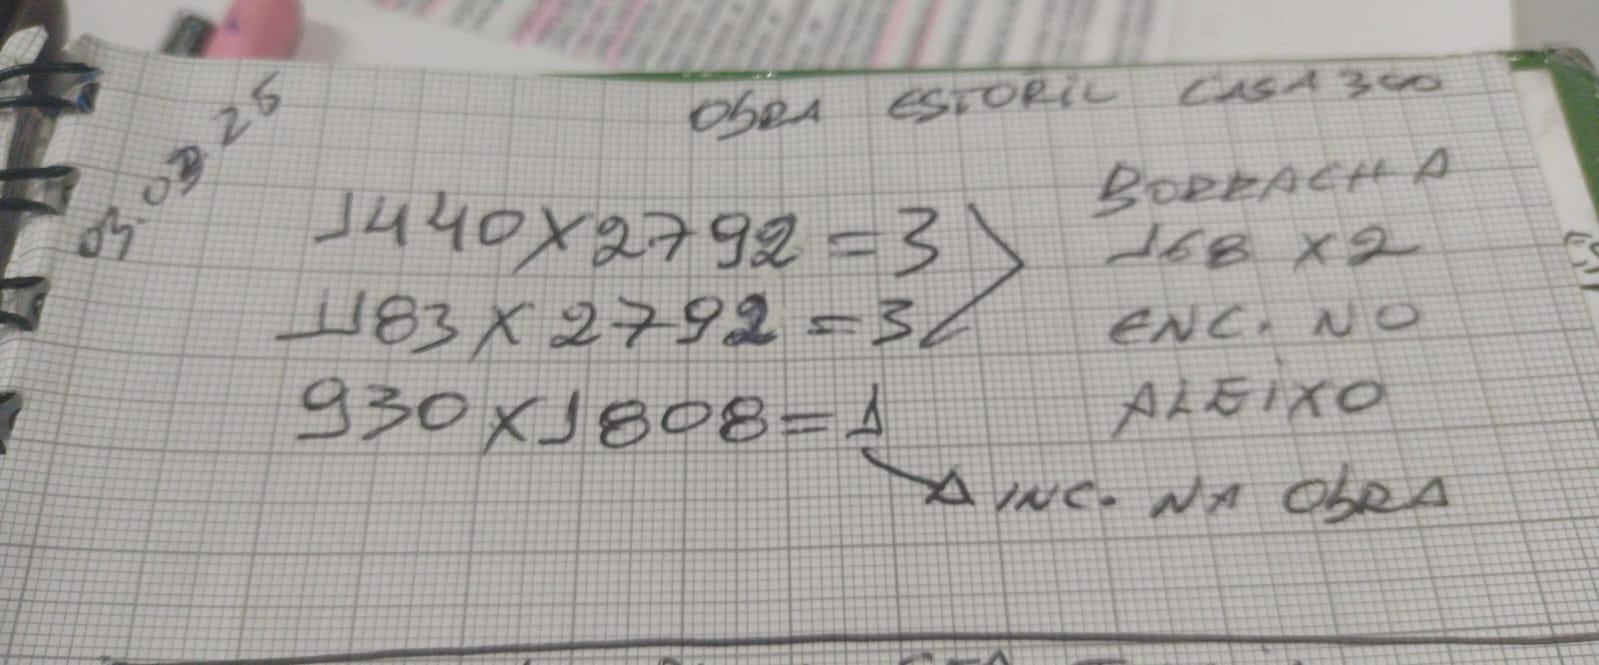 OBRA ESTORIL CASA 300
1440 X 2792 = 3
1183 X 2792 = 3
930 X 1808 = 1
INC. NA OBRA
BORRACHA
168 X 2
ENC. NO
ALEIXO